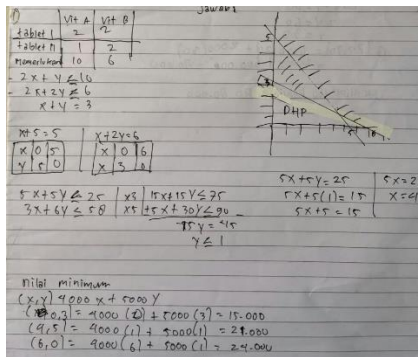 Jawab:
Vit A Vit B
tablet I 2 2
tablet II 1 2
Memerlukan 10 6
2x + y ≤ 10
2x + 2y ≤ 6
x + y = 3
x+5=5 x+2y=6
x 0 5 x 0 6
y 5 0 x 3 0
5
3
DHP
5 10
5x + 5y ≤ 25 x3 15x+15y ≤ 75
3x + 6y ≤ 58 x5 +5x + 30y ≤ 90
15y = 45
y ≤ 1
5x + 5y = 25
5x+5(1) = 15
5x+5 = 15
5x=2
nilai minimum
(x,y) 4000 x + 5000 y
0,3) = 4000 (0) + 5000 (3) = 15.000
(4,5) = 4000 (1) + 5000 (1) = 21.000
(6,0) = 4000 (6) + 5000 (1) = 24.000